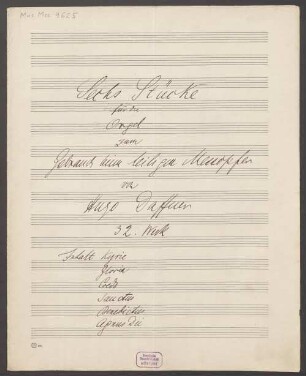 Mus. Mss. 9605
Sechs Stücke
für die
Orgel
zum
Gebrauch beim heiligen Messopfer
von
Hugo Daffner
32. Werk
Inhalt: Kyrie
Gloria
Credo
Sanctus
Benedictus
Agnus Dei